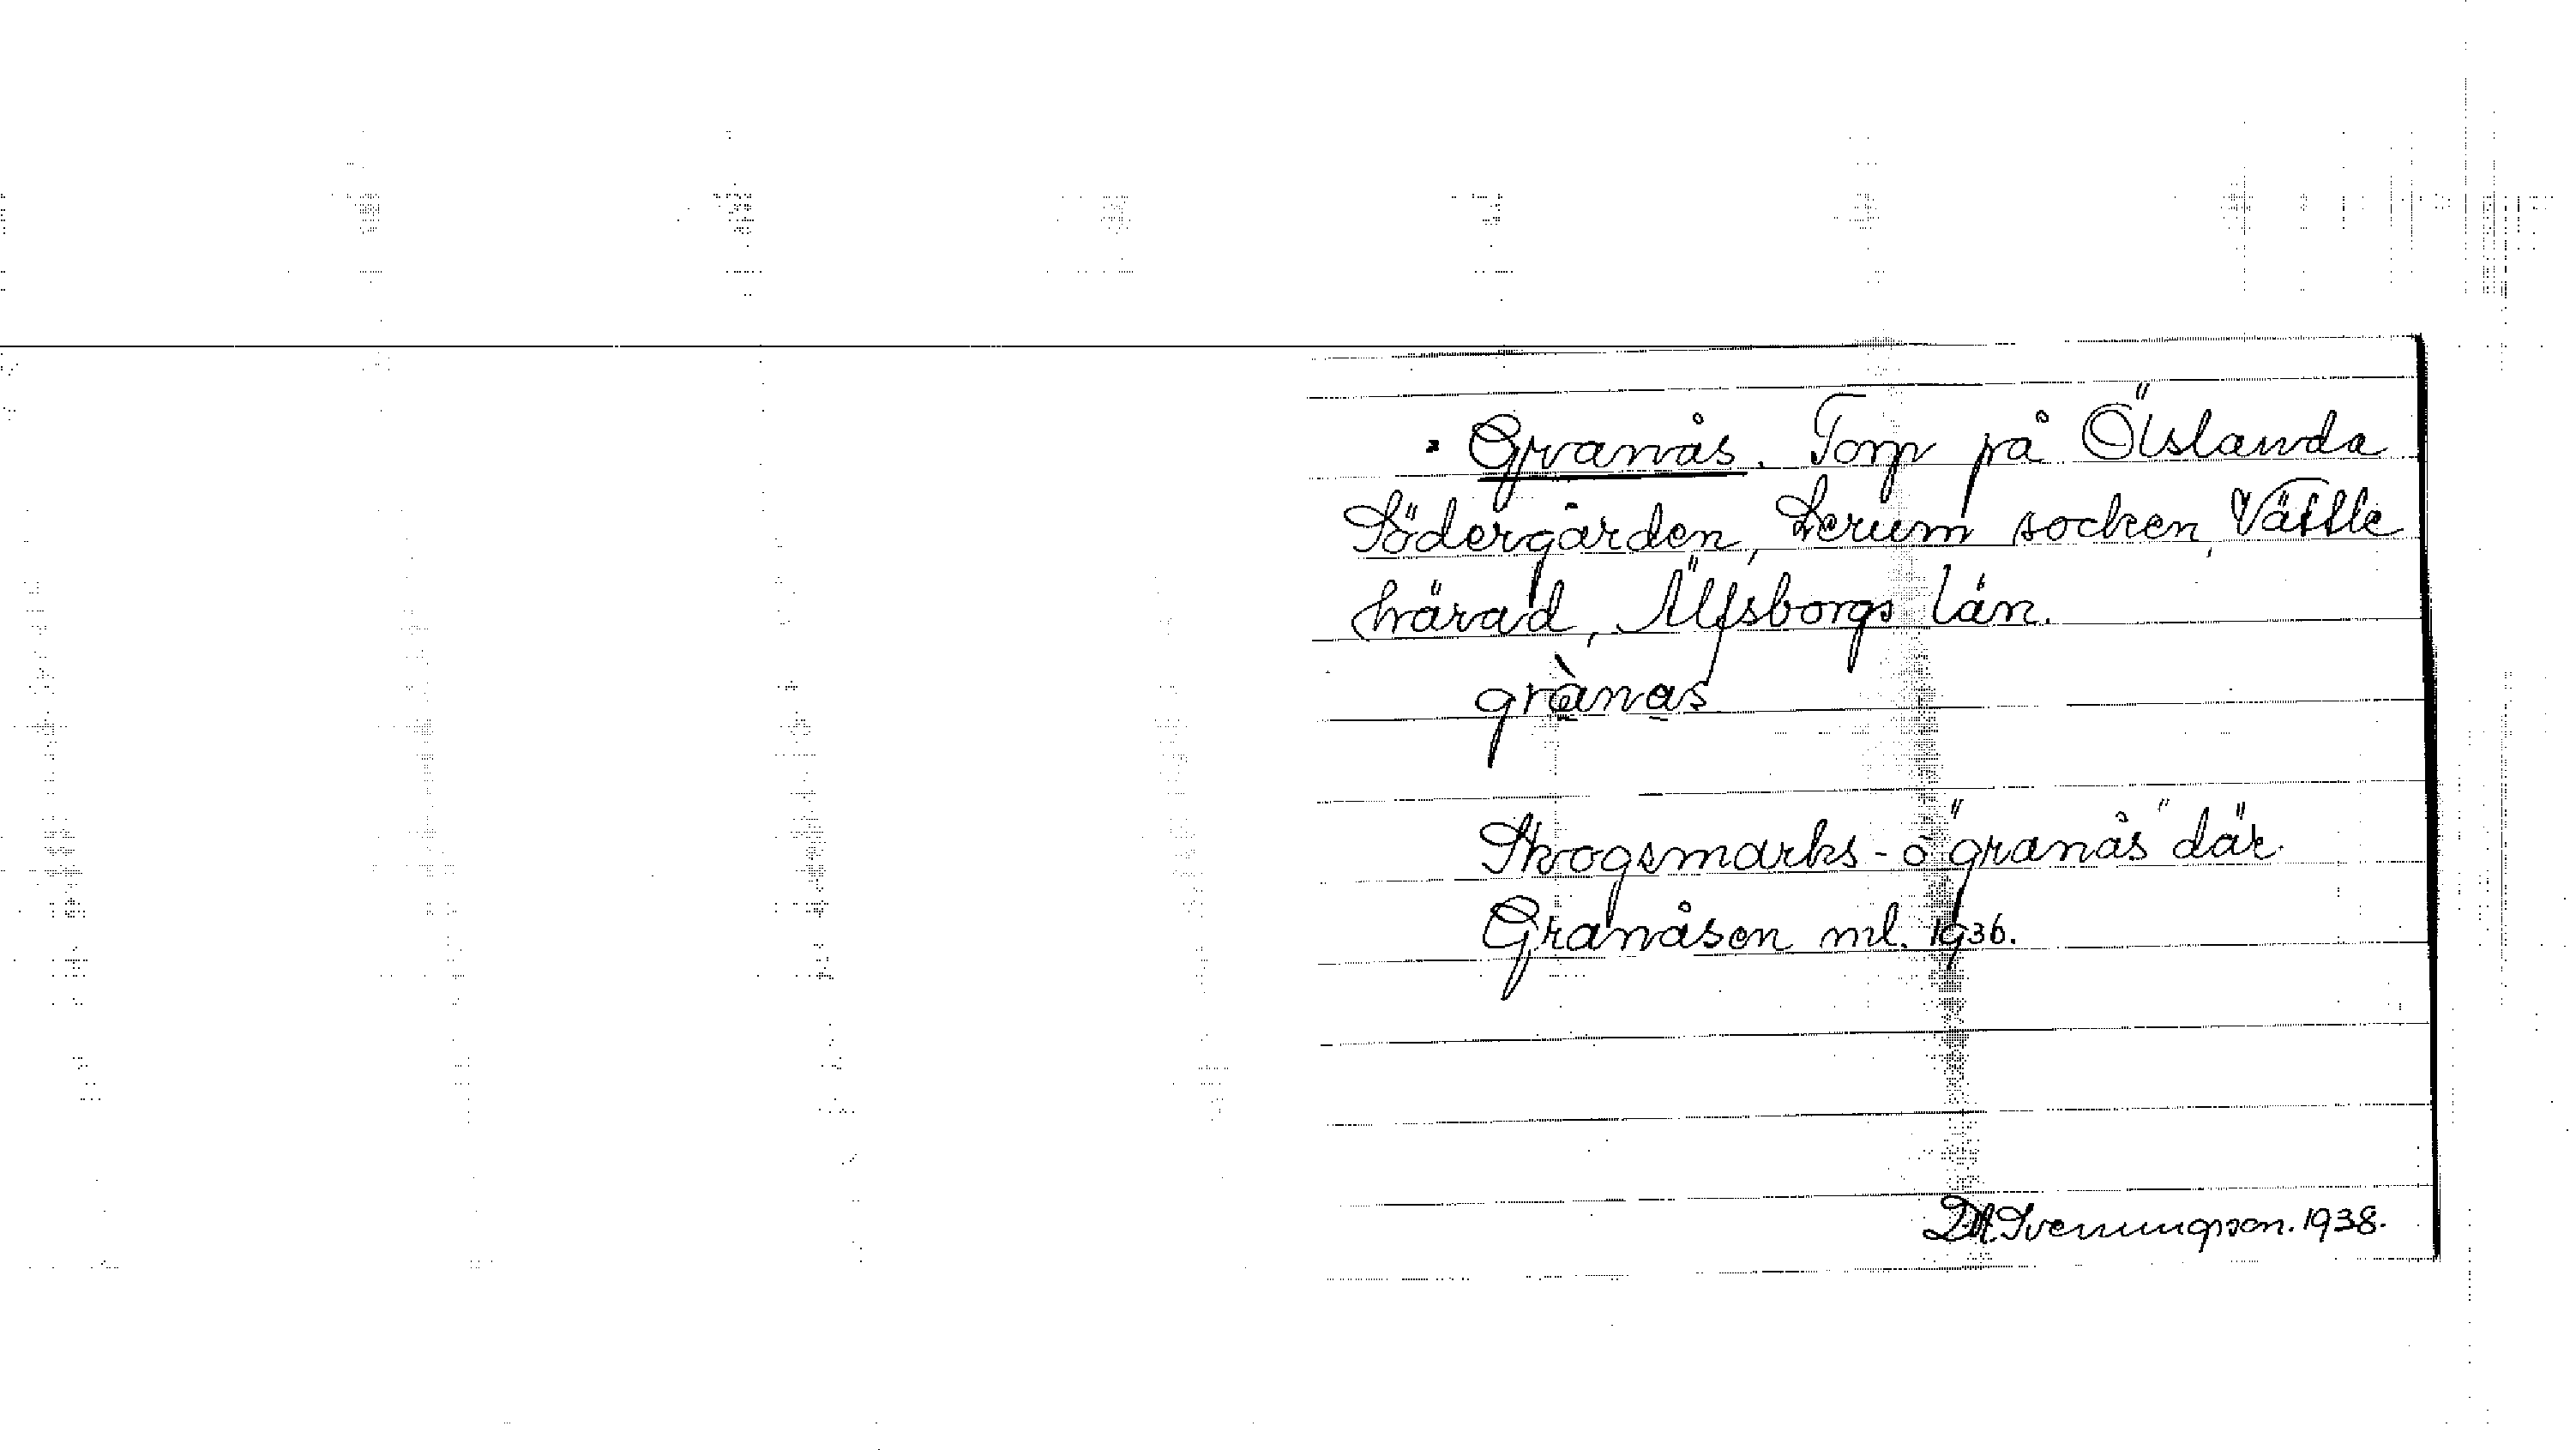 . Granås. Torp på Ölslanda
Södergården, Lerum socken, Vättle
härad, Älfsborgs län.
grànas
Skogsmarks- o "granås" där.
Granåsen ml. 1936.
D.A. Svenungson. 1938.